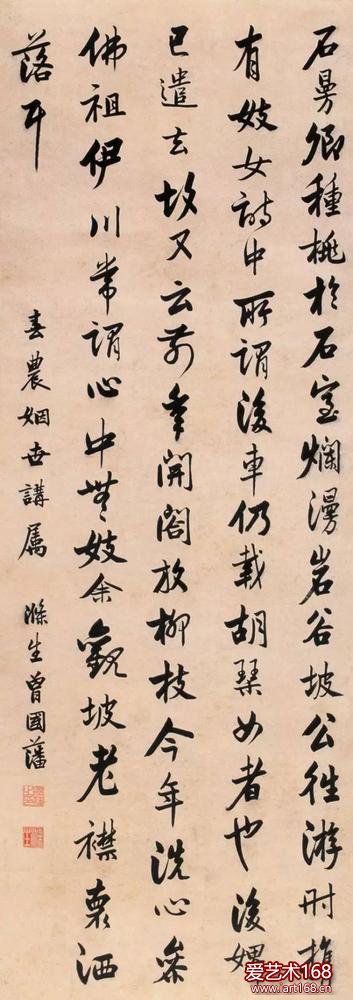 石曼卿種桃於石室爛漫岩谷坡公往游時携
有妓女詩中所謂後車仍載胡琴女者也後媼
已遣去故又云前年開閣放柳枝今年洗心參
佛祖伊川常謂心中無妓余觀坡老襟懷洒
落耳
春農姻世講属 滌生曾國藩
爱艺术168
www.art168.com